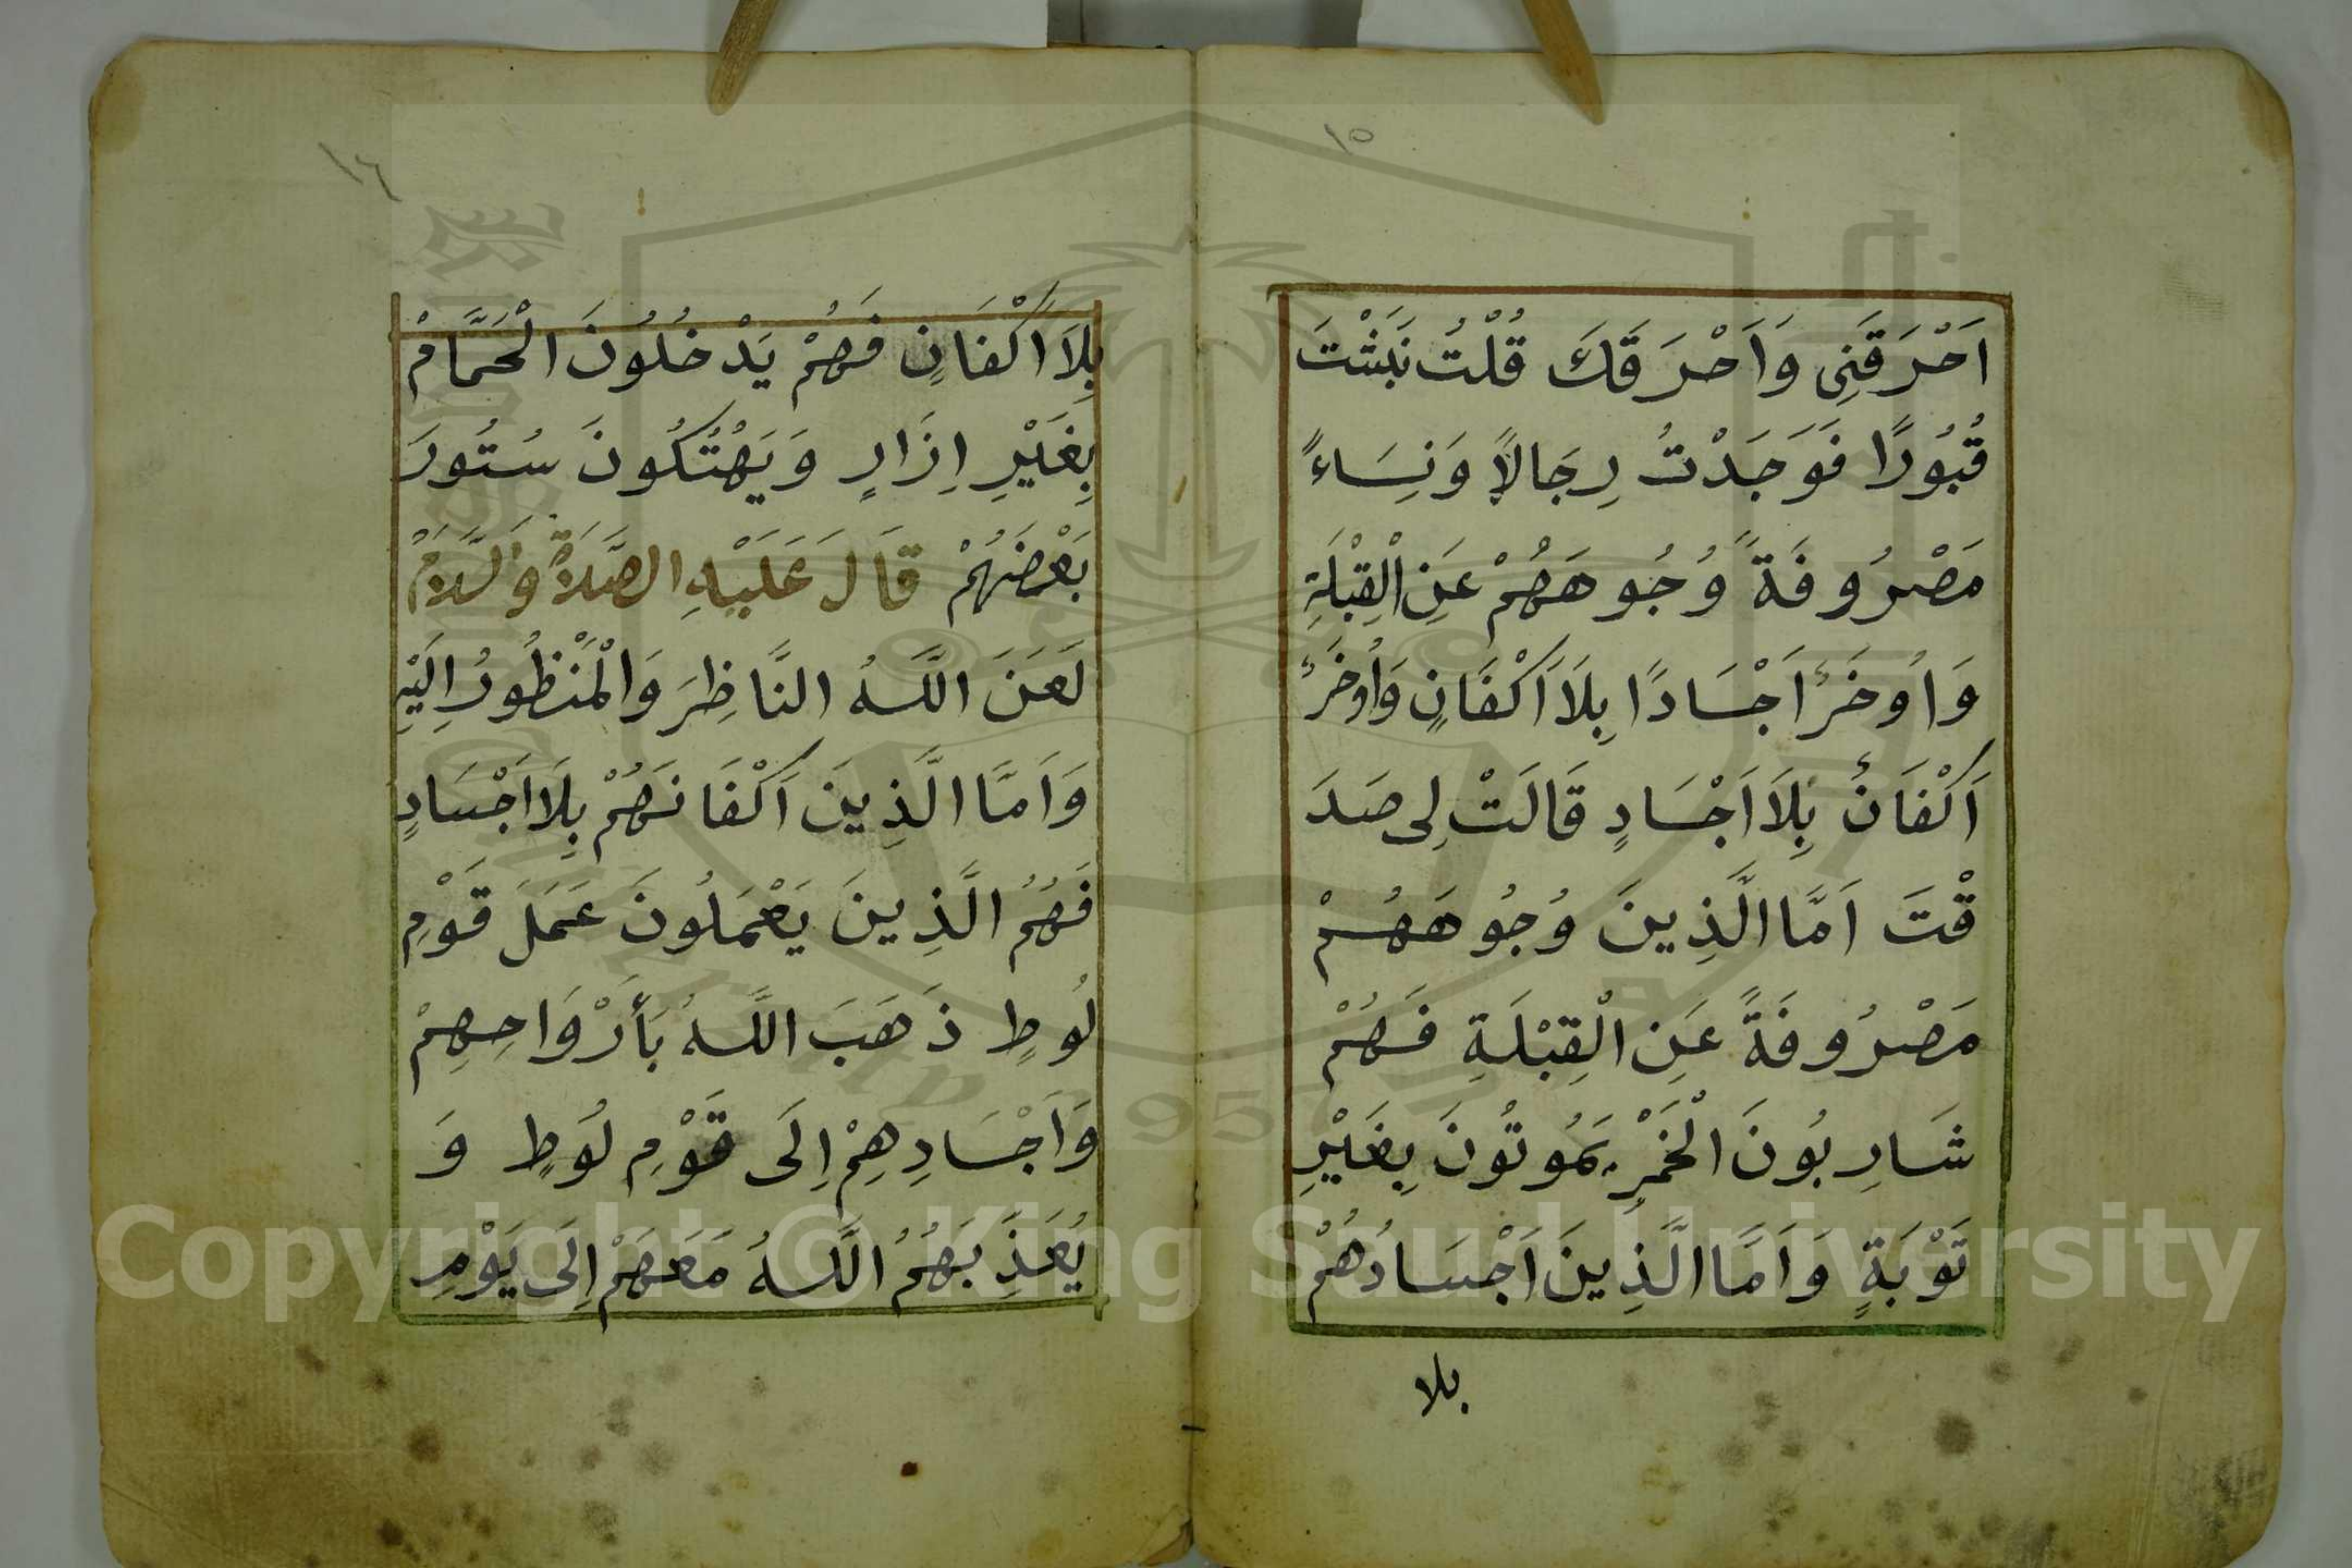 ١٥
اَحْرَقَنِى وَاَحْرَقَكَ قُلْتُ نَبَشْتَ
قُبُورًا فَوَجَدْتُ رِجَالاً وَنِسَاءً
مَصْرُوفَةً وُجُوهَهُمْ عَنِ الْقِبْلَةِ
وَاُوخَرُ اَجْسَادًا بِلَا اَكْفَانٍ وَاُوخَرُ
اَكْفَانٌ بِلَا اَجْسَادٍ قَالَتْ لِى صَدَ
قْتَ اَمَّا الَّذِينَ وُجُوهَهُمْ
مَصْرُوفَةً عَنِ الْقِبْلَةِ فَهُمْ
شَارِبُونَ الْخَمْرِ يَمُوتُونَ بِغَيْرِ
تَوْبَةٍ وَاَمَّا الَّذِينَ اَجْسَادُهُمْ
بلا
١٦
بِلَا اَكْفَانٍ فَهُمْ يَدْخُلُونَ الْحَمَّامْ
بِغَيْرِ اِزَارٍ وَيَهْتُكُونَ سُتُورَ
بَعْضَهُمْ قَالَ عَلَيْهِ الصَّلَاةُ وَالسَّلَامُ
لَعَنَ اللَّهُ النَّاظِرَ وَالْمَنْظُورُ اِلَيْهِ
وَاَمَّا الَّذِينَ اَكْفَانَهُمْ بِلَا اَجْسَادٍ
فَهُمُ الَّذِينَ يَعْمَلُونَ عَمَلَ قَوْمِ
لُوطٍ ذَهَبَ اللَّهُ بَأَرْوَاحِهِمْ
وَاَجْسَادِهِمْ اِلَى قَوْمِ لُوطٍ وَ
يُعَذِّبَهُمُ اللَّهُ مَعَهُمْ اِلَى يَوْمِ
Copyright © King Saud University
1957